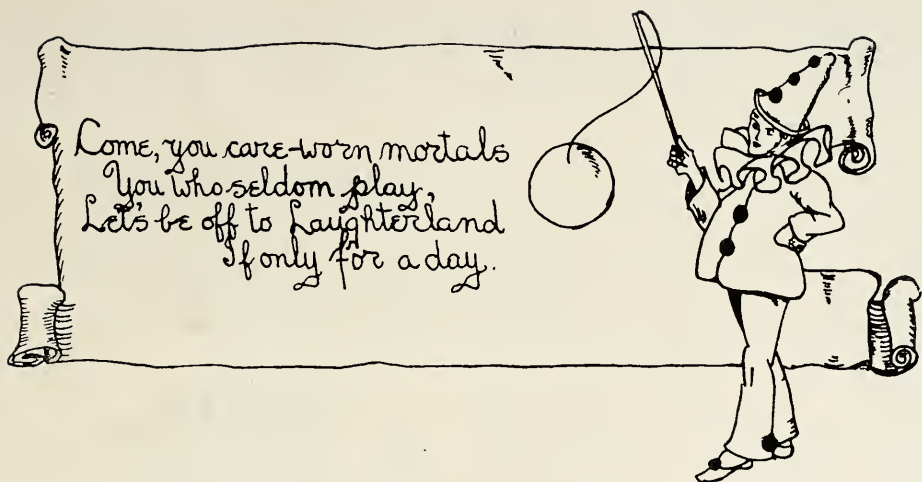 Come, you care-worn mortals
You who seldom play,
Let's be off to Laughterland
If only for a day.